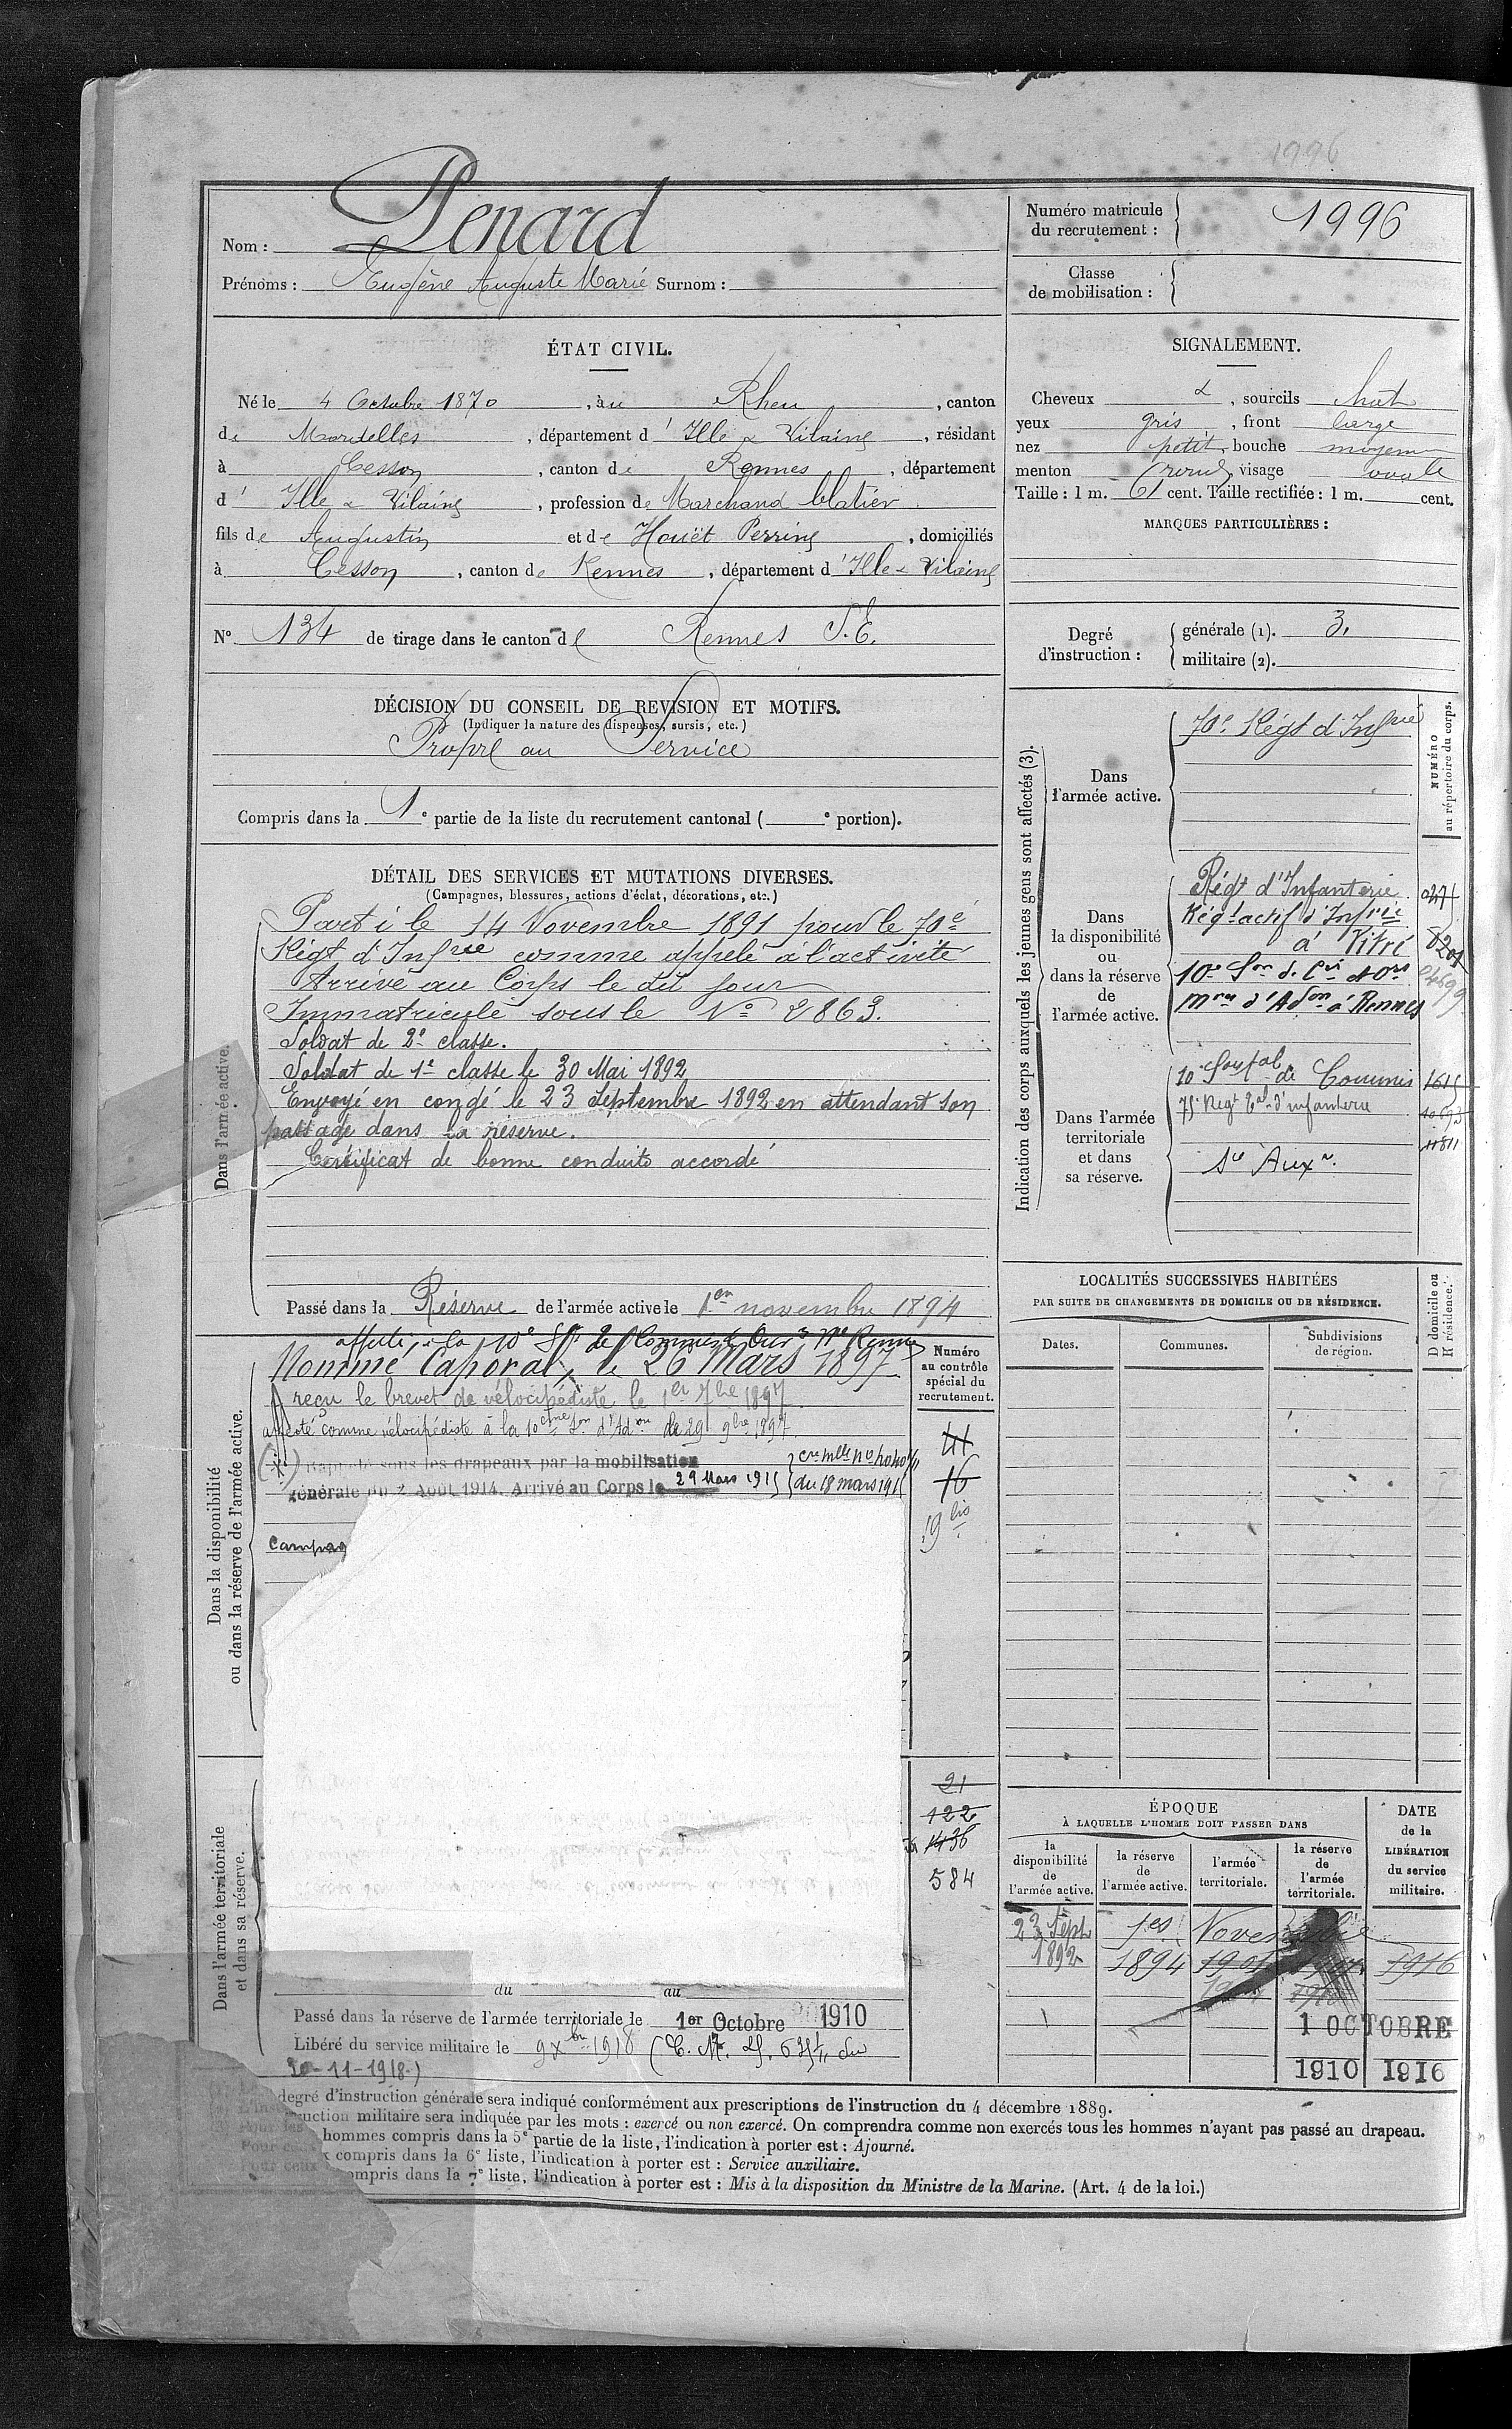 1996
Nom : Penard
Prénoms : Eugène Auguste Marie Surnom :
Numéro matricule du recrutement : 1996
Classe de mobilisation :
ÉTAT CIVIL.
Né le 4 Octobre 1870, à u Rheu, canton
de Mordelles, département d' Ille & Vilaine, résidant
à Cesson, canton de Rennes, département
d' Ille & Vilaine, profession de Marchand blatier
fils de Augustin et de Houët Perrine, domiciliés
à Cesson, canton de Rennes, département d'Ille & Vilaine
N° 134 de tirage dans le canton de Rennes S.E.
SIGNALEMENT.
Cheveux &, sourcils chat
yeux gris, front large
nez petit, bouche moyenne
menton rond visage ovale
Taille : 1 m. 61 cent. Taille rectifiée : 1 m. cent.
MARQUES PARTICULIÈRES :
Degré d'instruction : générale (1). 3.
militaire (2).
DÉCISION DU CONSEIL DE REVISION ET MOTIFS.
(Indiquer la nature des dispenses, sursis, etc.)
Propre au Service
Compris dans la 1e partie de la liste du recrutement cantonal ( e portion).
DÉTAIL DES SERVICES ET MUTATIONS DIVERSES.
(Campagnes, blessures, actions d'éclat, décorations, etc.)
Dans l'armée active.
Parti le 14 Novembre 1891 pour le 70e
Régt d'Infrie comme appelé à l'activité
Arrivé au Corps le dit jour
Immatriculé sous le No 2863.
Soldat de 2e classe.
Soldat de 1e classe le 30 Mai 1892
Envoyé en congé le 23 Septembre 1892 en attendant son
passage dans la réserve.
Certificat de bonne conduite accordé
Passé dans la Réserve de l'armée active le 1er novembre 1894
Indication des corps auxquels les jeunes gens sont affectés (3).
NUMÉRO au répertoire du corps.
Dans l'armée active.
70e Régt d'Infrie
Dans la disponibilité ou dans la réserve de l'armée active.
Régt d'Infanterie
Régt actif d'Infrie
à Vitré 8201
10e Son de Cis et Ors 04699
Mres d'Adon à Rennes
Dans l'armée territoriale et dans sa réserve.
10e de Commis 1615
75e Regt Tal d'infanterie
11811
Sce Auxre.
Dans la disponibilité ou dans la réserve de l'armée active.
affecté à la 10e Son de Commis Ouvrs Mre Rennes
Nommé Caporal, le 26 Mars 1897
reçu le brevet de vélocipédiste le 1er 7bre 1897.
affecté comme vélocipédiste à la 10eme Son d'Adon le 29 9bre 1897.
(x) Rappelé sous les drapeaux par la mobilisation
générale du 2 Août 1914. Arrivé au Corps le 29 Mars 1915 du 18 mars 1915
Campag
Numéro au contrôle spécial du recrutement.
16
19 bis
21
122
1436
584
LOCALITÉS SUCCESSIVES HABITÉES
PAR SUITE DE CHANGEMENTS DE DOMICILE OU DE RÉSIDENCE.
Dates. Communes. Subdivisions de région. D domicile ou R résidence.
Dans l'armée territoriale et dans sa réserve.
du au
Passé dans la réserve de l'armée territoriale le 1er Octobre 1910
Libéré du service militaire le 9 Xbre 1918 (C. M. du
20-11-1918.)
ÉPOQUE
À LAQUELLE L'HOMME DOIT PASSER DANS
la disponibilité de l'armée active. la réserve de l'armée active. l'armée territoriale. la réserve de l'armée territoriale.
DATE de la LIBÉRATION du service militaire.
23 Sept 1er Novembre
1892 1894 1904 1916
1 OCTOBRE
1910 1916
degré d'instruction générale sera indiqué conformément aux prescriptions de l'instruction du 4 décembre 1889.
ruction militaire sera indiquée par les mots : exercé ou non exercé. On comprendra comme non exercés tous les hommes n'ayant pas passé au drapeau.
hommes compris dans la 5e partie de la liste, l'indication à porter est : Ajourné.
Pour ceux compris dans la 6e liste, l'indication à porter est : Service auxiliaire.
Pour ceux compris dans la 7e liste, l'indication à porter est : Mis à la disposition du Ministre de la Marine. (Art. 4 de la loi.)